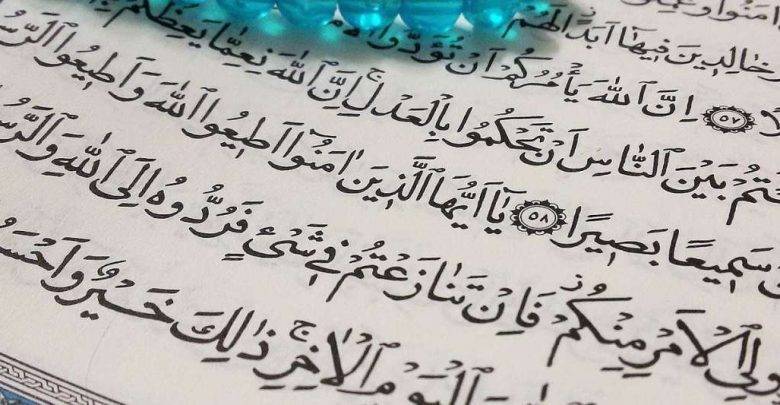 اٰمَنُوا وَعَمِلُوا
خَالِدِينَ فِيهَا اَبَدًا لَهُمْ
لًا ﴿٥٧﴾ اِنَّ اللّٰهَ يَأْمُرُكُمْ اَنْ تُؤَدُّوا الْاَ
ـمْتُمْ بَيْنَ النَّاسِ اَنْ تَحْكُمُوا بِالْعَدْلِ ۚ اِنَّ اللّٰهَ نِعِمَّا يَعِظُكُمْ
سَمِيعًا بَصِيرًا ﴿٥٨﴾ يَٓا اَيُّهَا الَّذِينَ اٰمَنُٓوا اَطِيعُوا اللّٰهَ وَاَطِيعُوا الرَّسُ
ولِي الْاَمْرِ مِنْكُمْ ۚ فَاِنْ تَنَازَعْتُمْ فِي شَيْءٍ فَرُدُّوهُ اِلَى اللّٰهِ وَالرَّسُ
الْيَوْمِ الْاٰخِرِ ۚ ذٰلِكَ خَيْرٌ وَاَحْسَ